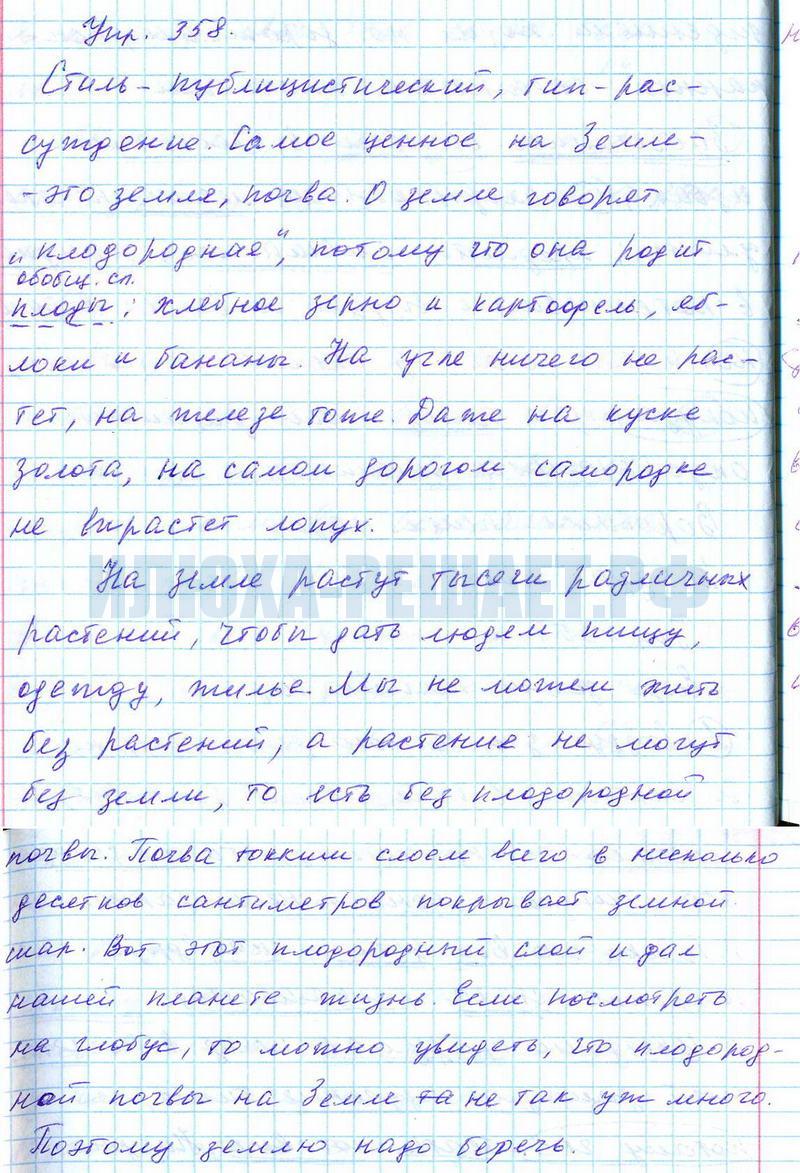 Упр. 358.
Стиль – публицистический, тип – рас-
суждение. Самое ценное на Земле –
– это земля, почва. О земле говорят
„плодородная“, потому что она родит
обобщ. сл.
плоды: хлебное зерно и картофель, яб-
локи и бананы. На угле ничего не рас-
тет, на железе тоже. Даже на куске
золота, на самом дорогом самородке
не вырастет лопух.
ИЛЮХА-РЕШАЕТ.РФ
На земле растут тысячи различных
растений, чтобы дать людям пищу,
одежду, жилье. Мы не можем жить
без растений, а растения не могут
без земли, то есть без плодородной
почвы. Почва тонким слоем всего в несколько
десятков сантиметров покрывает земной
шар. Вот этот плодородный слой и дал
нашей планете жизнь. Если посмотреть
на глобус, то можно увидеть, что плодород-
ной почвы на Земле не так уж много.
Поэтому землю надо беречь.